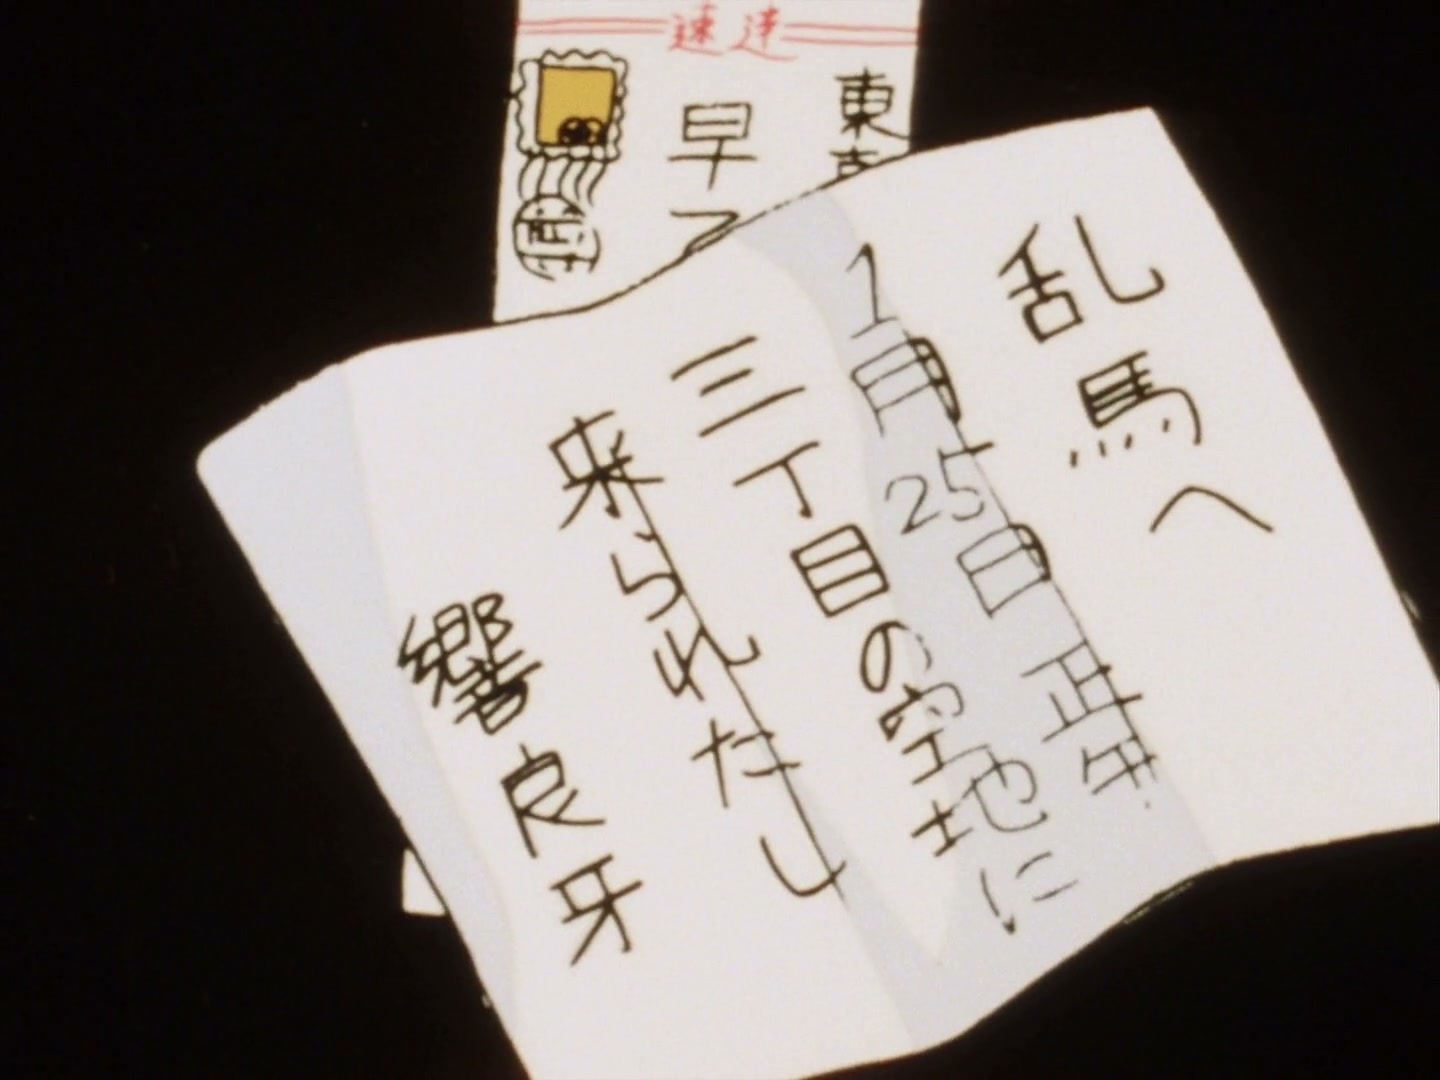 速達
東京
早乙
乱馬へ
1月25日正午
三丁目の空地に
来られたし
響良牙